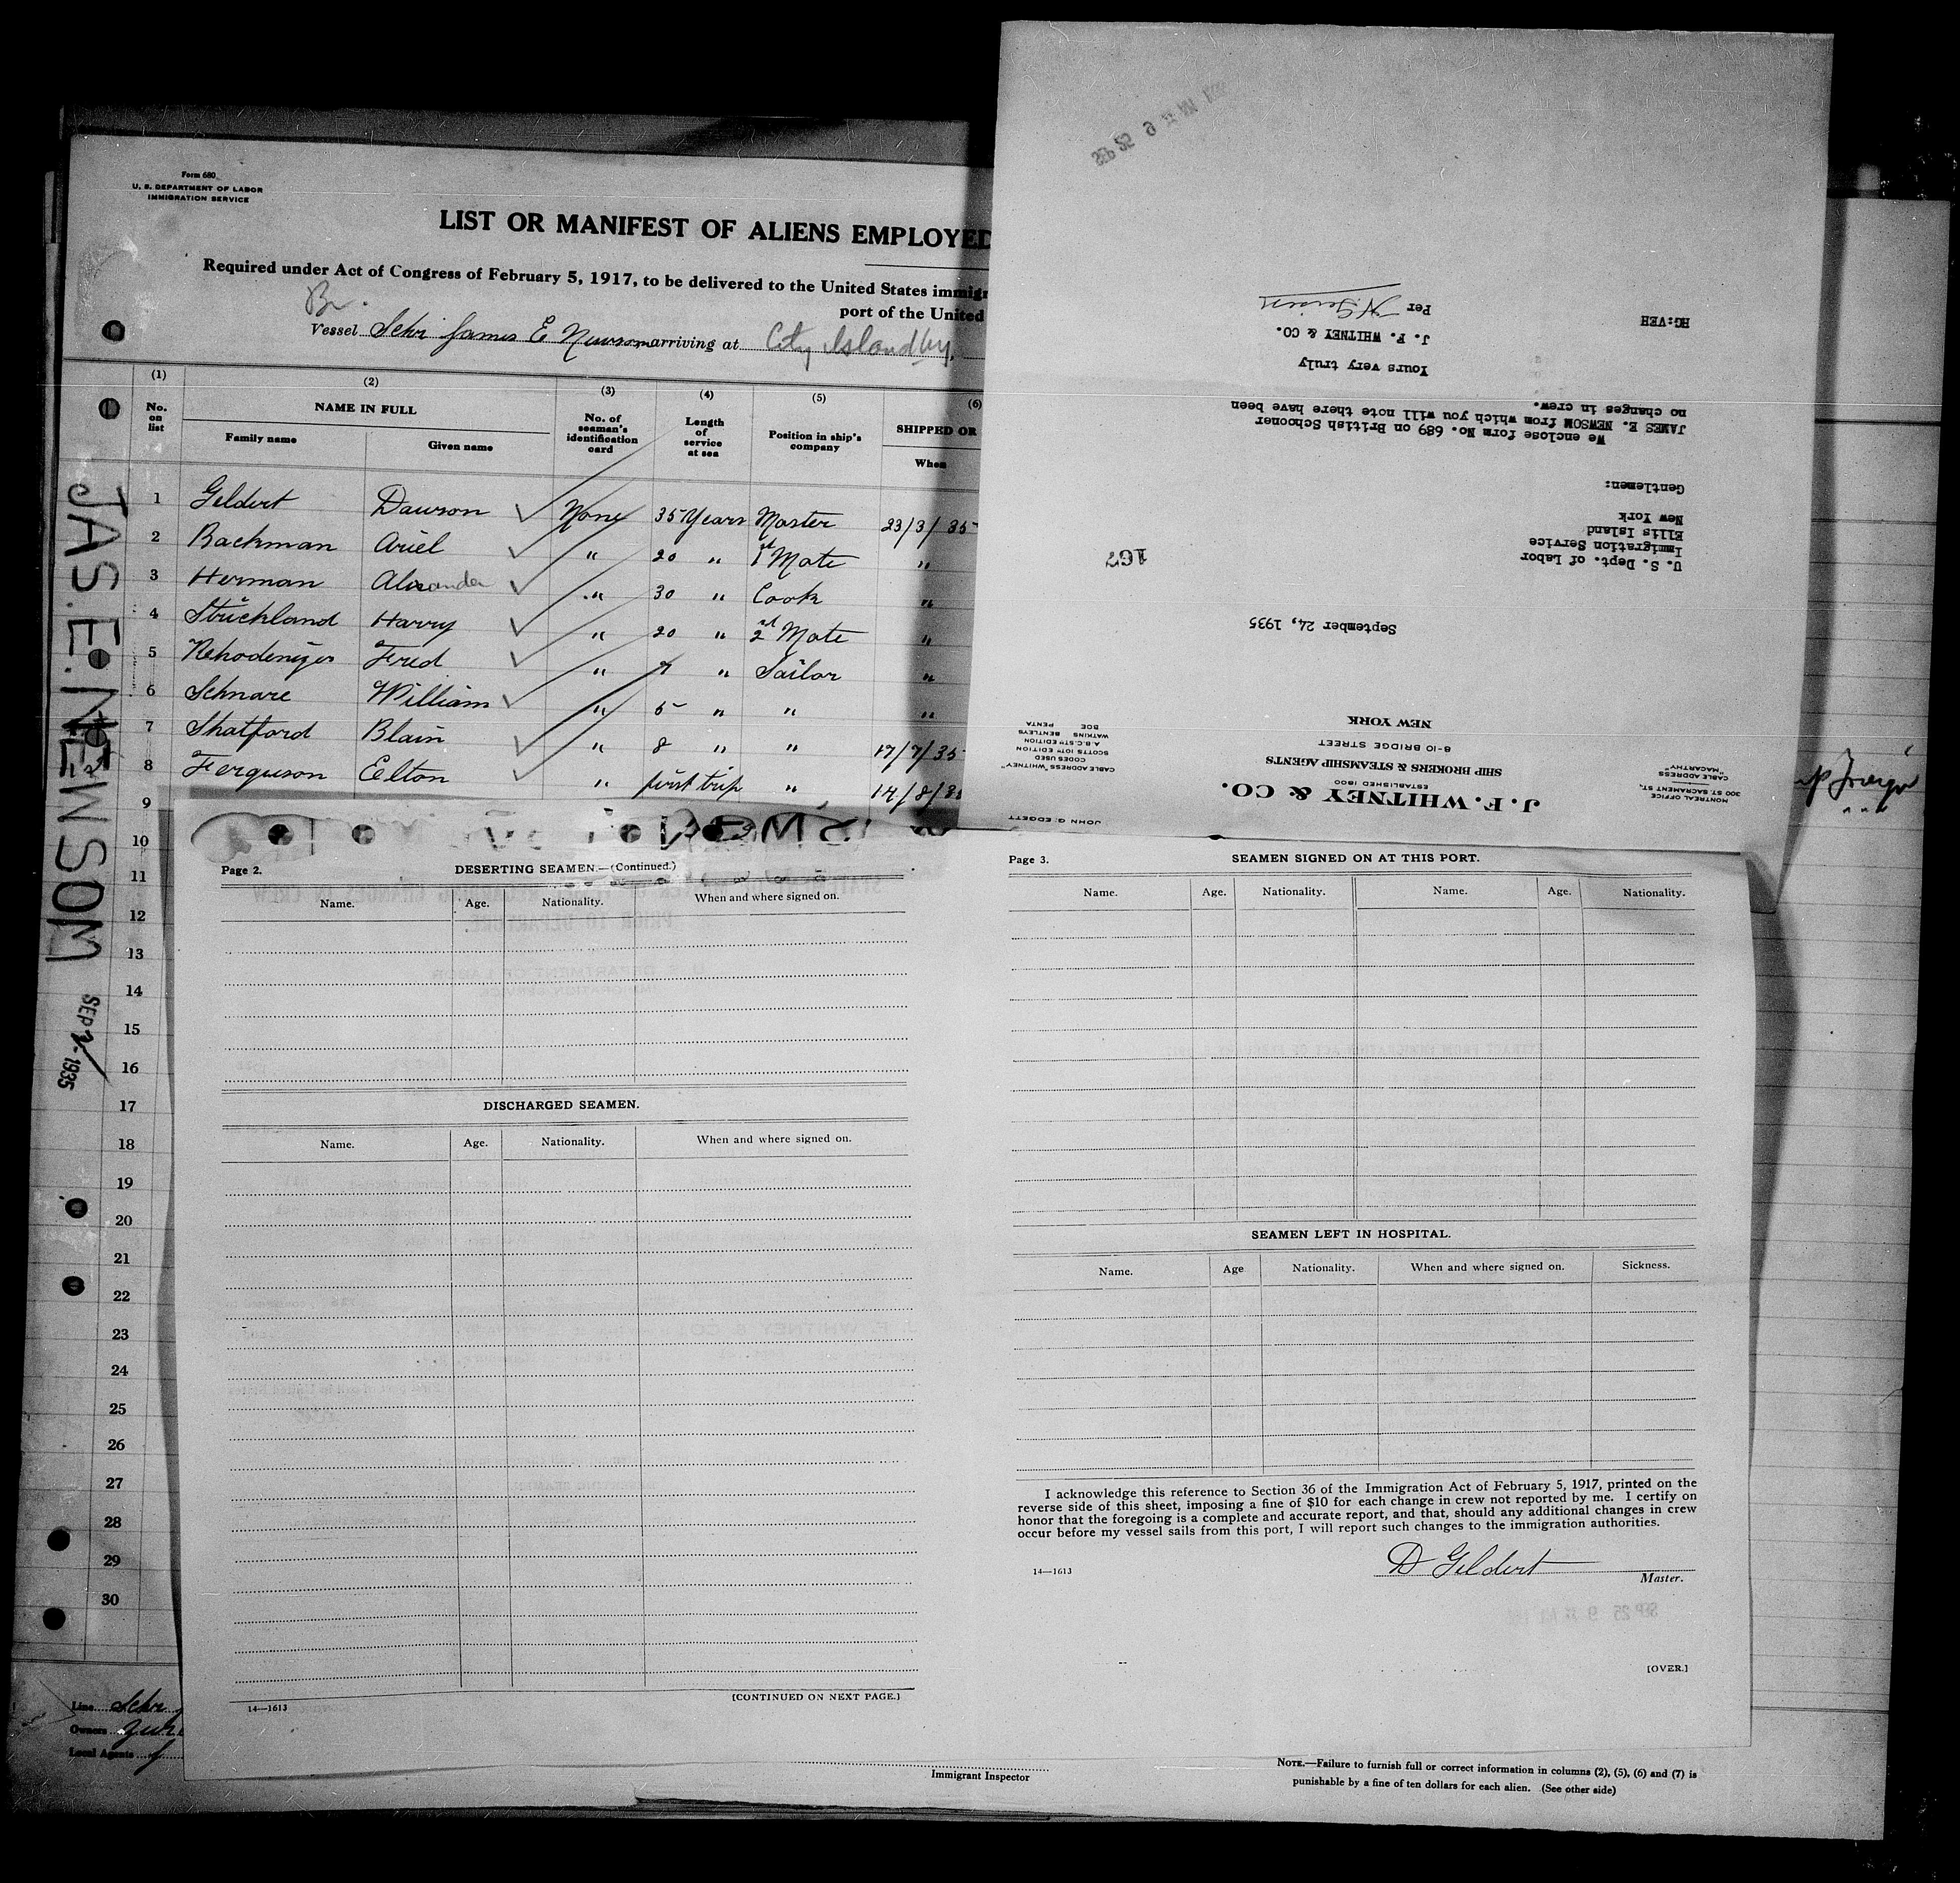 Form 680
U. S. DEPARTMENT OF LABOR
IMMIGRATION SERVICE
LIST OR MANIFEST OF ALIENS EMPLOYED
Required under Act of Congress of February 5, 1917, to be delivered to the United States immigr
port of the United
Br.
Vessel Schr James E Newsom arriving at City Island by,
(1) (2) (3) (4) (5) (6)
No. on list
NAME IN FULL
Family name Given name
No. of seaman's identification card
Length of service at sea
Position in ship's company
SHIPPED OR
When
1 Geldert Dawson None 35 Years Master 23/3/35
2 Backman Ariel " 20 " 1st Mate "
3 Herman Alexander " 30 " Cook "
4 Strickland Harry " 20 " 2nd Mate "
5 Rhodenizer Fred " " Sailor "
6 Schnare William " 5 " " "
7 Shatford Blain " 8 " " 17/7/35
8 Ferguson Eelton " first trip " 14/8/3
9
10
11
12
13
14
15
16
17
18
19
20
21
22
23
24
25
26
27
28
29
30
JAS. E. NEWSOM
SEP 1935
Line Schr
Owners
Local Agents J
J. F. WHITNEY & CO.
ESTABLISHED 1800
SHIP BROKERS & STEAMSHIP AGENTS
8-10 BRIDGE STREET
NEW YORK
JOHN G. EDGETT
MONTREAL OFFICE
300 ST. SACRAMENT ST.
CABLE ADDRESS
"MACARTHY"
CABLE ADDRESS "WHITNEY"
CODES USED
SCOTTS 10TH EDITION
A.B.C. 5TH EDITION
WATKINS BENTLEYS
BOE PENTA
September 24, 1935
167
U. S. Dept. of Labor
Immigration Service
Ellis Island
New York
Gentlemen:
We enclose form No. 689 on British Schooner
JAMES E. NEWSOM from which you will note there have been
no changes in crew.
Yours very truly
J. F. WHITNEY & CO.
Per
HG:VEH
Page 2.
DESERTING SEAMEN.—(Continued.)
Name. Age. Nationality. When and where signed on.
DISCHARGED SEAMEN.
Name. Age. Nationality. When and where signed on.
14—1613
[CONTINUED ON NEXT PAGE.]
Page 3.
SEAMEN SIGNED ON AT THIS PORT.
Name. Age. Nationality. Name. Age. Nationality.
SEAMEN LEFT IN HOSPITAL.
Name. Age Nationality. When and where signed on. Sickness.
I acknowledge this reference to Section 36 of the Immigration Act of February 5, 1917, printed on the
reverse side of this sheet, imposing a fine of $10 for each change in crew not reported by me. I certify on
honor that the foregoing is a complete and accurate report, and that, should any additional changes in crew
occur before my vessel sails from this port, I will report such changes to the immigration authorities.
14—1613
D Geldert
Master.
SEP 25 9
[OVER.]
Immigrant Inspector
NOTE.—Failure to furnish full or correct information in columns (2), (5), (6) and (7) is
punishable by a fine of ten dollars for each alien. (See other side)